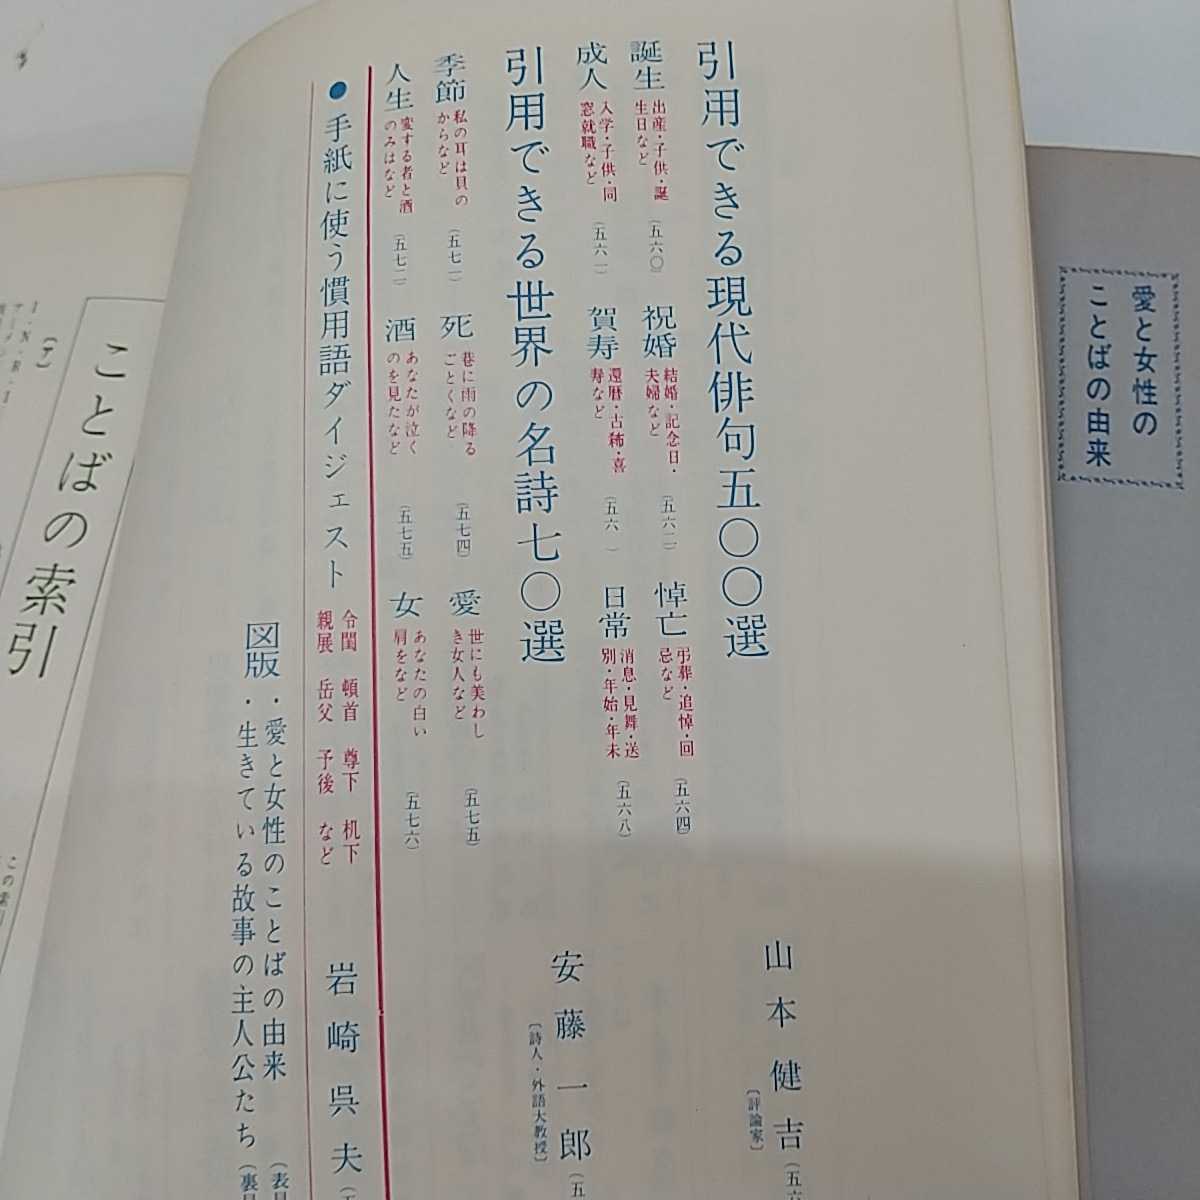 愛と女性の
ことばの由来
引用できる現代俳句五〇〇選
山本健吉
〔評論家〕
誕生
出産・子供・誕
生日など
(五六〇)
祝婚
結婚・記念日・
夫婦など
(五六二)
悼亡
弔葬・追悼・回
忌など
(五六四)
成人
入学・子供・同
窓就職など
(五六一)
賀寿
還暦・古稀・喜
寿など
日常
消息・見舞・送
別・年始・年末
(五六八)
引用できる世界の名詩七〇選
安藤一郎
〔詩人・外語大教授〕
季節
私の耳は貝の
からなど
(五七一)
死
巷に雨の降る
ごとくなど
(五七四)
愛
世にも美わし
き女人など
(五七五)
人生
変する者と酒
のみはなど
(五七二)
酒
あなたが泣く
のを見たなど
(五七五)
女
あなたの白い
肩をなど
(五七六)
●手紙に使う慣用語ダイジェスト
令閨 頓首 尊下 机下
親展 岳父 予後 など
岩崎呉夫
図版
・愛と女性のことばの由来
・生きている故事の主人公たち
ことばの索引
〔ア〕